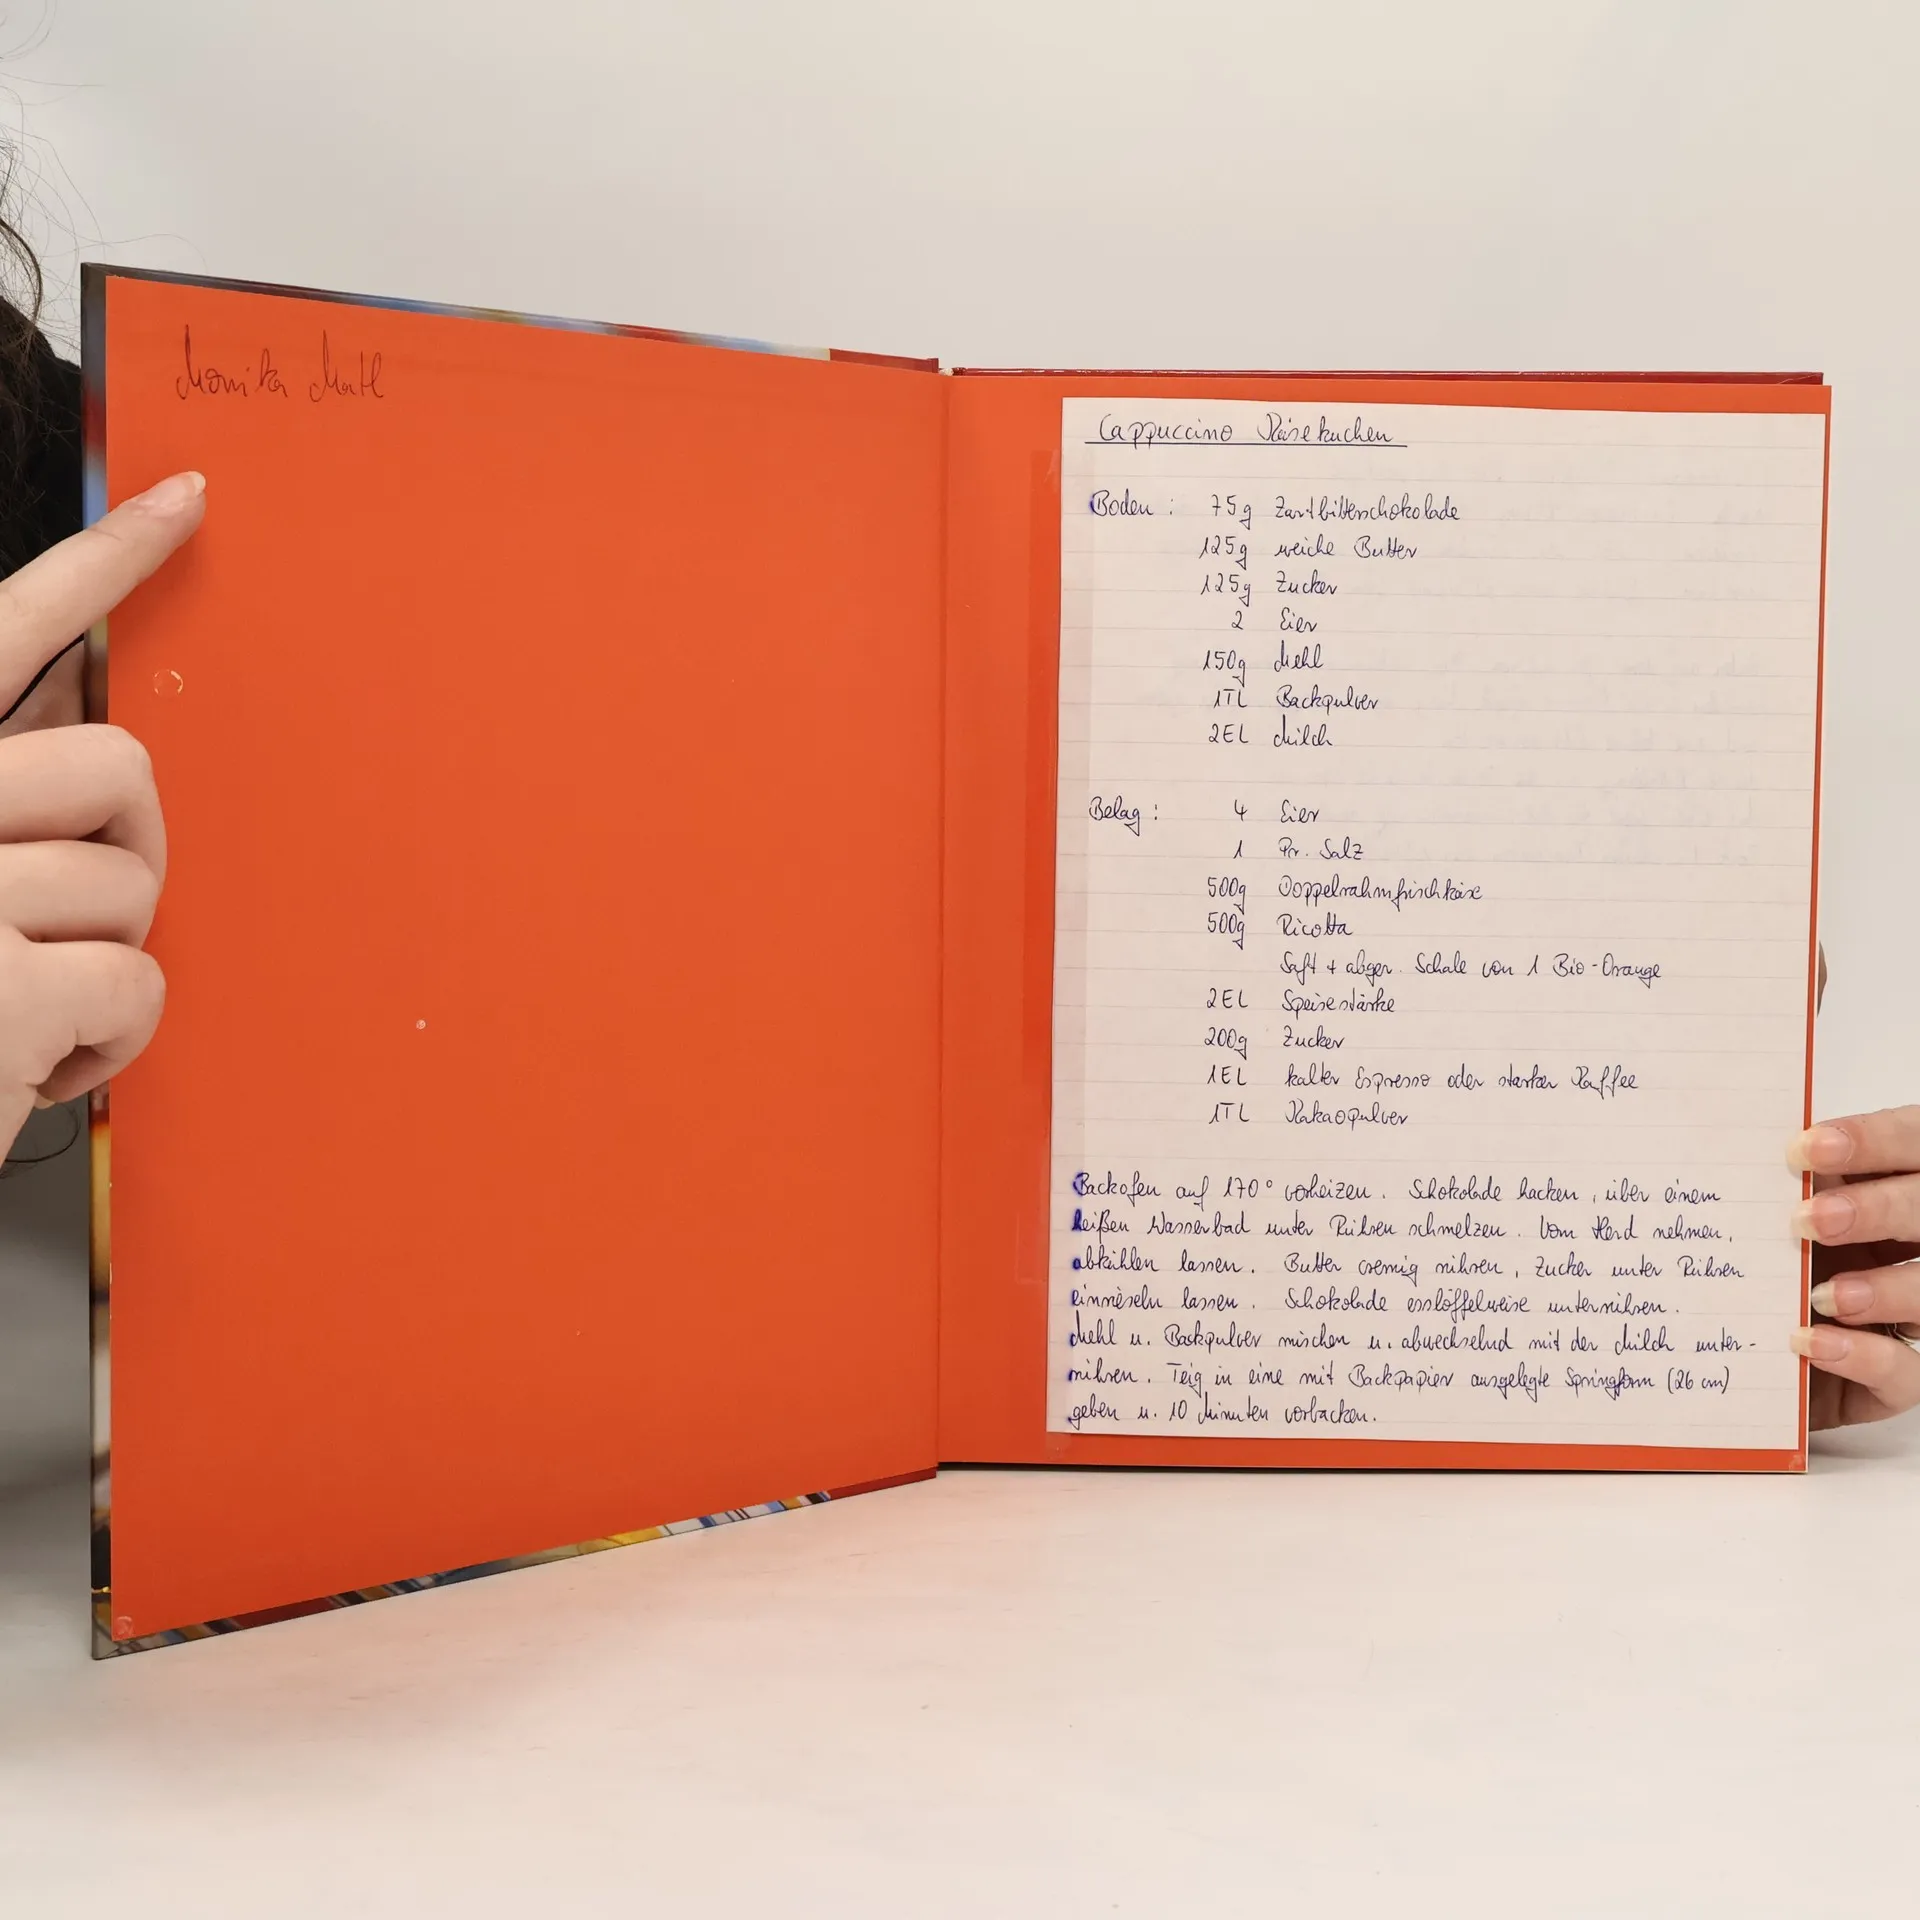 Monika Matl
Cappuccino Käsekuchen
Boden : 75g Zartbitterschokolade
125g weiche Butter
125g Zucker
2 Eier
150g Mehl
1TL Backpulver
2EL Milch
Belag : 4 Eier
1 Pr. Salz
500g Doppelrahmfrischkäse
500g Ricotta
Saft + abger. Schale von 1 Bio-Orange
2EL Speisestärke
200g Zucker
1EL kalter Espresso oder starker Kaffee
1TL Kakaopulver
Backofen auf 170° vorheizen. Schokolade hacken, über einem
heißen Wasserbad unter Rühren schmelzen. Vom Herd nehmen,
abkühlen lassen. Butter cremig rühren, Zucker unter Rühren
einrieseln lassen. Schokolade esslöffelweise unterrühren.
Mehl u. Backpulver mischen u. abwechselnd mit der Milch unter-
rühren. Teig in eine mit Backpapier ausgelegte Springform (26 cm)
geben u. 10 Minuten vorbacken.